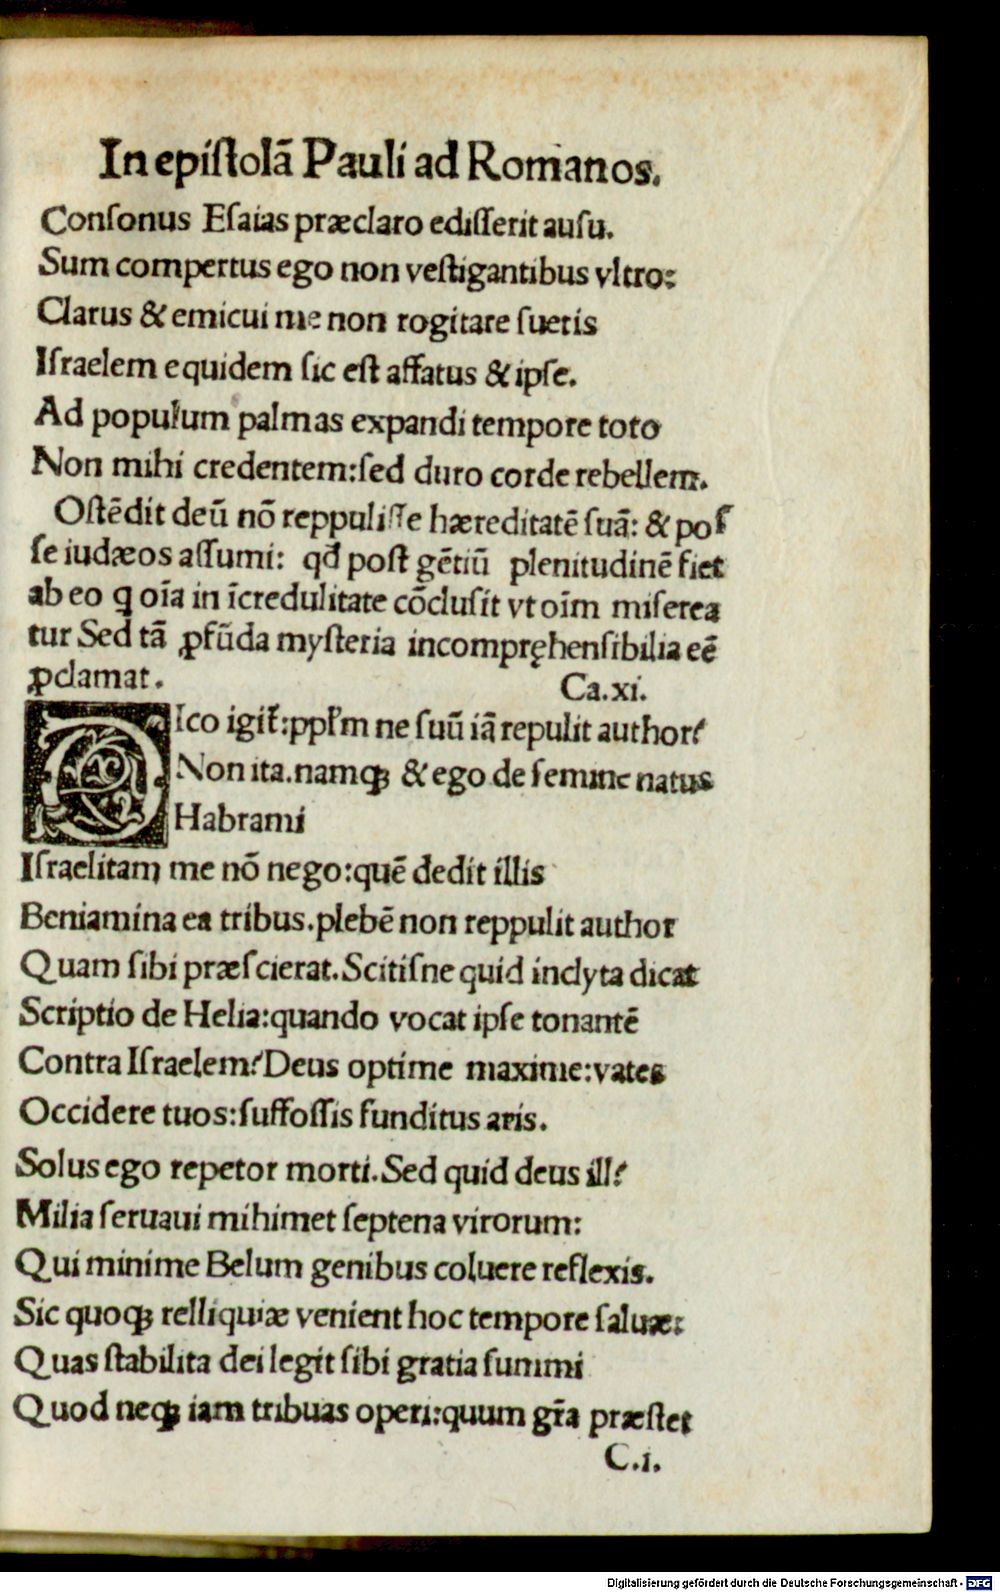 In epiſtolā Pauli ad Romanos.
Conſonus Eſaias præclaro ediſſerit auſu.
Sum compertus ego non veſtigantibus vltro:
Clarus & emicui me non rogitare ſuetis
Iſraelem equidem ſic eſt affatus & ipſe.
Ad populum palmas expandi tempore toto
Non mihi credentem:ſed duro corde rebellem.
Oſtēdit deū nō reppuliſſe hæreditatē ſuā: & poſ
ſe iudæos aſſumi: qđ poſt gētiū plenitudinē fiet
ab eo q oīa in īcredulitate cōcluſit vt oīm miſerea
tur Sed tā ꝓfūda myſteria incompręhenſibilia eē
ꝓclamat.
Ca.xi.
DIco igiť:ppľm ne ſuū iā repulit author?
Non ita.namqꝫ & ego de ſemine natus
Habrami
Iſraelitam me nō nego:quē dedit illis
Beniamina ea tribus.plebē non reppulit author
Quam ſibi præſcierat.Scitiſne quid inclyta dicat
Scriptio de Helia:quando vocat ipſe tonantē
Contra Iſraelem?Deus optime maxime:vates
Occidere tuos:ſuffoſſis funditus aris.
Solus ego repetor morti.Sed quid deus illi?
Milia ſeruaui mihimet ſeptena virorum:
Qui minime Belum genibus coluere reflexis.
Sic quoqꝫ relliquiæ venient hoc tempore ſaluæ:
Quas ſtabilita dei legit ſibi gratia ſummi
Quod neqꝫ iam tribuas operi:quum gr̄a præſtet
C.i.
Digitalisierung gefördert durch die Deutsche Forschungsgemeinschaft - DFG